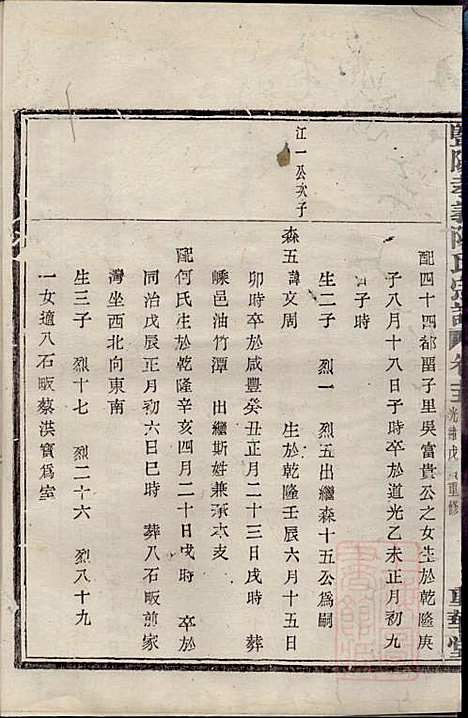 暨陽孝義陳氏宗譜 卷十三 光緒戊重修
配四十四都畱子里吳富貴公之女生於乾隆庚
子八月十八日子時卒於道光乙未正月初九
日子時
生二子 烈一 烈五出繼森十五公爲嗣
江一公次子
森五諱文周 生於乾隆壬辰六月十五日
卯時卒於咸豐癸丑正月二十三日戌時 葬
嵊邑油竹潭 出繼斯姓兼承本支
配何氏生於乾隆辛亥四月二十日戌時 卒於
同治戊辰正月初六日巳時 葬八石畈前家
灣坐西北向東南
生三子 烈十七 烈二十六 烈八十九
一女適八石畈蔡洪寶爲室